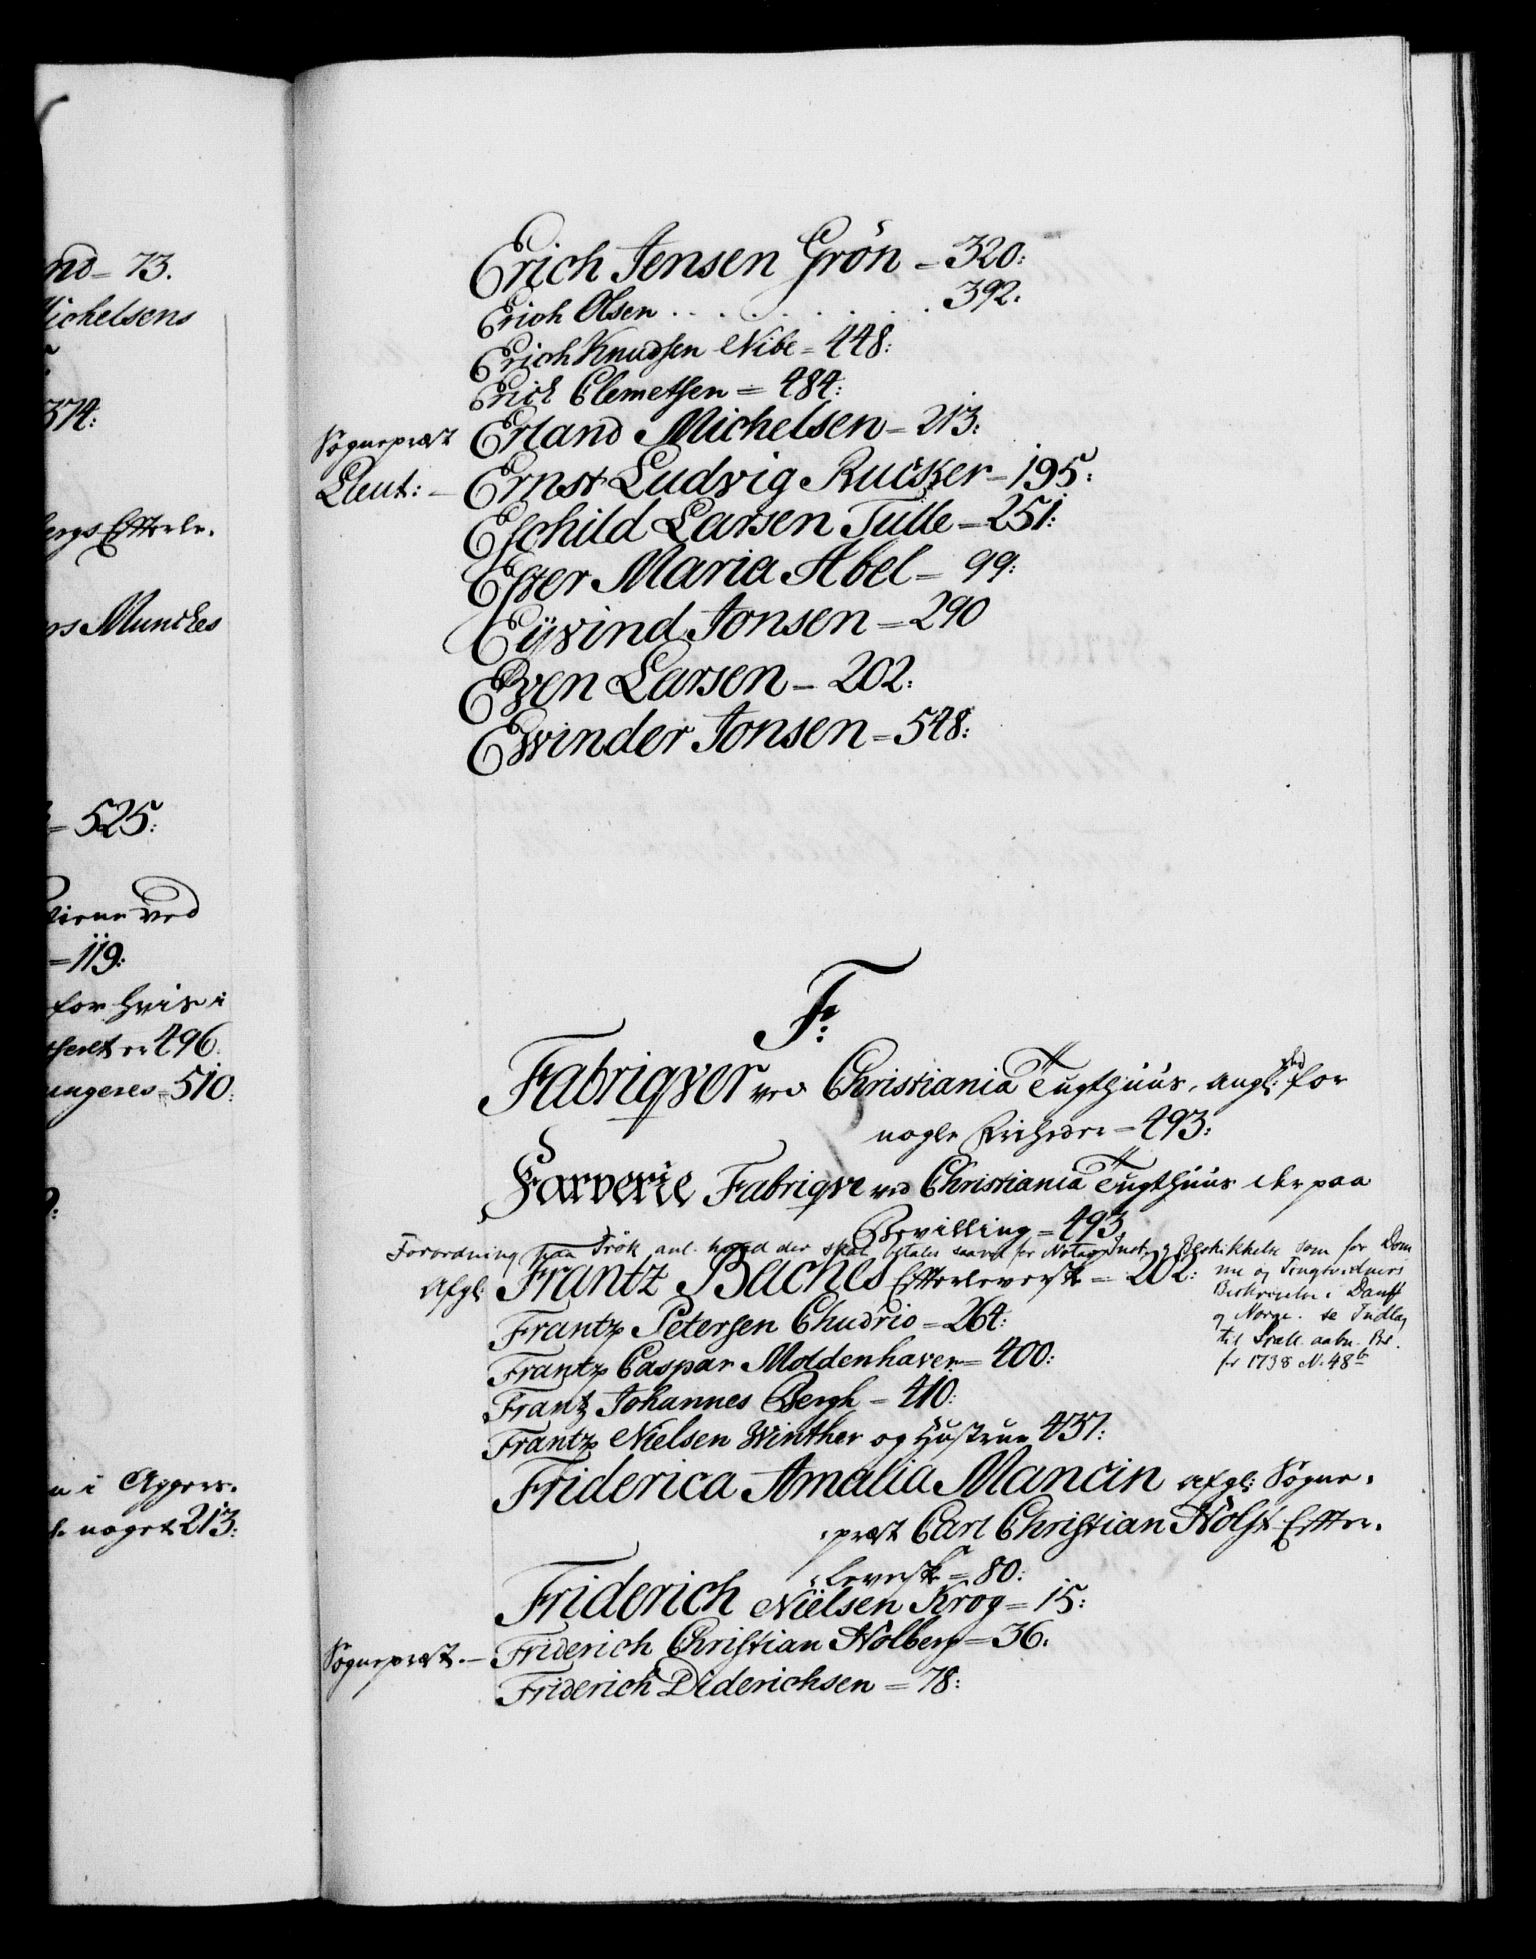 nd - 73.
Michelsens
374:
bergs Effterle.
rs Munches
= 525:
ved
= 119:
for hvis i
496.
ungeres = 510:
n i Aggers.
noget 213:
Erich Jensen Grön - 320:
Erich Olsen . . . . . . . . . 392.
Erich Knudsen Nibe = 448:
Erich Clemetsen = 484:
Sognepræst Erland Michelsen - 213:
Lieut: - Ernst Ludvig Rucker - 195:
Eschild Larsen Tulle - 251:
Ester Maria Abel - 99:
Eÿvind Jonsen = 290
Even Larsen - 202:
Evinder Jonsen = 548:
F:
Fabriqver ved Christiania Tugthuus, angl: for
nogle Friheder = 493:
Farverie Fabriqve ved Christiania Tugthuus paa
Bevilling = 493
Forordning paa Trök anl. hvad der skal betales saavel for som for Dom
Afgl: Frantz Baches Effterleverske = 202:
me og Tingsvidners
Beskrivelse i Dank
og Norge. se Indlæg
til aabn. Br.
for 1738 N. 48 b
Frantz Petersen Chudrio = 264:
Frantz Caspar Moldenhaver = 400:
Frantz Johannes Bergh = 410:
Frantz Nielsen Winther og Hustrue 437:
Friderica Amalia Mancin afgl: Sogne-
præst Carl Christian Holst Effter-
leverske = 80:
Friderich Nielsen Krog = 15:
Sognepræst. - Friderich Christian Holberg = 36:
Friderich Diderichsen = 78: